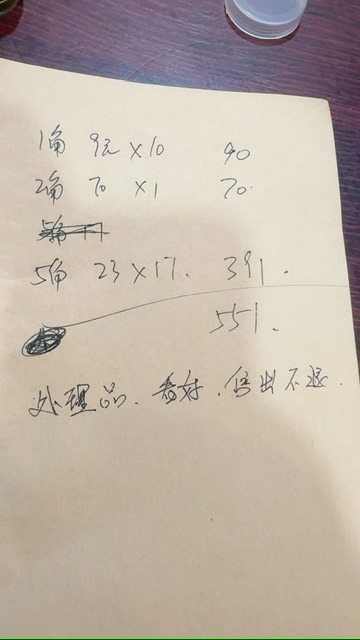 1角 9元 ×10 90
2角 70 ×1 70.
5角 23 ×17. 391.
551.
处理品. 看好. 售出不退.